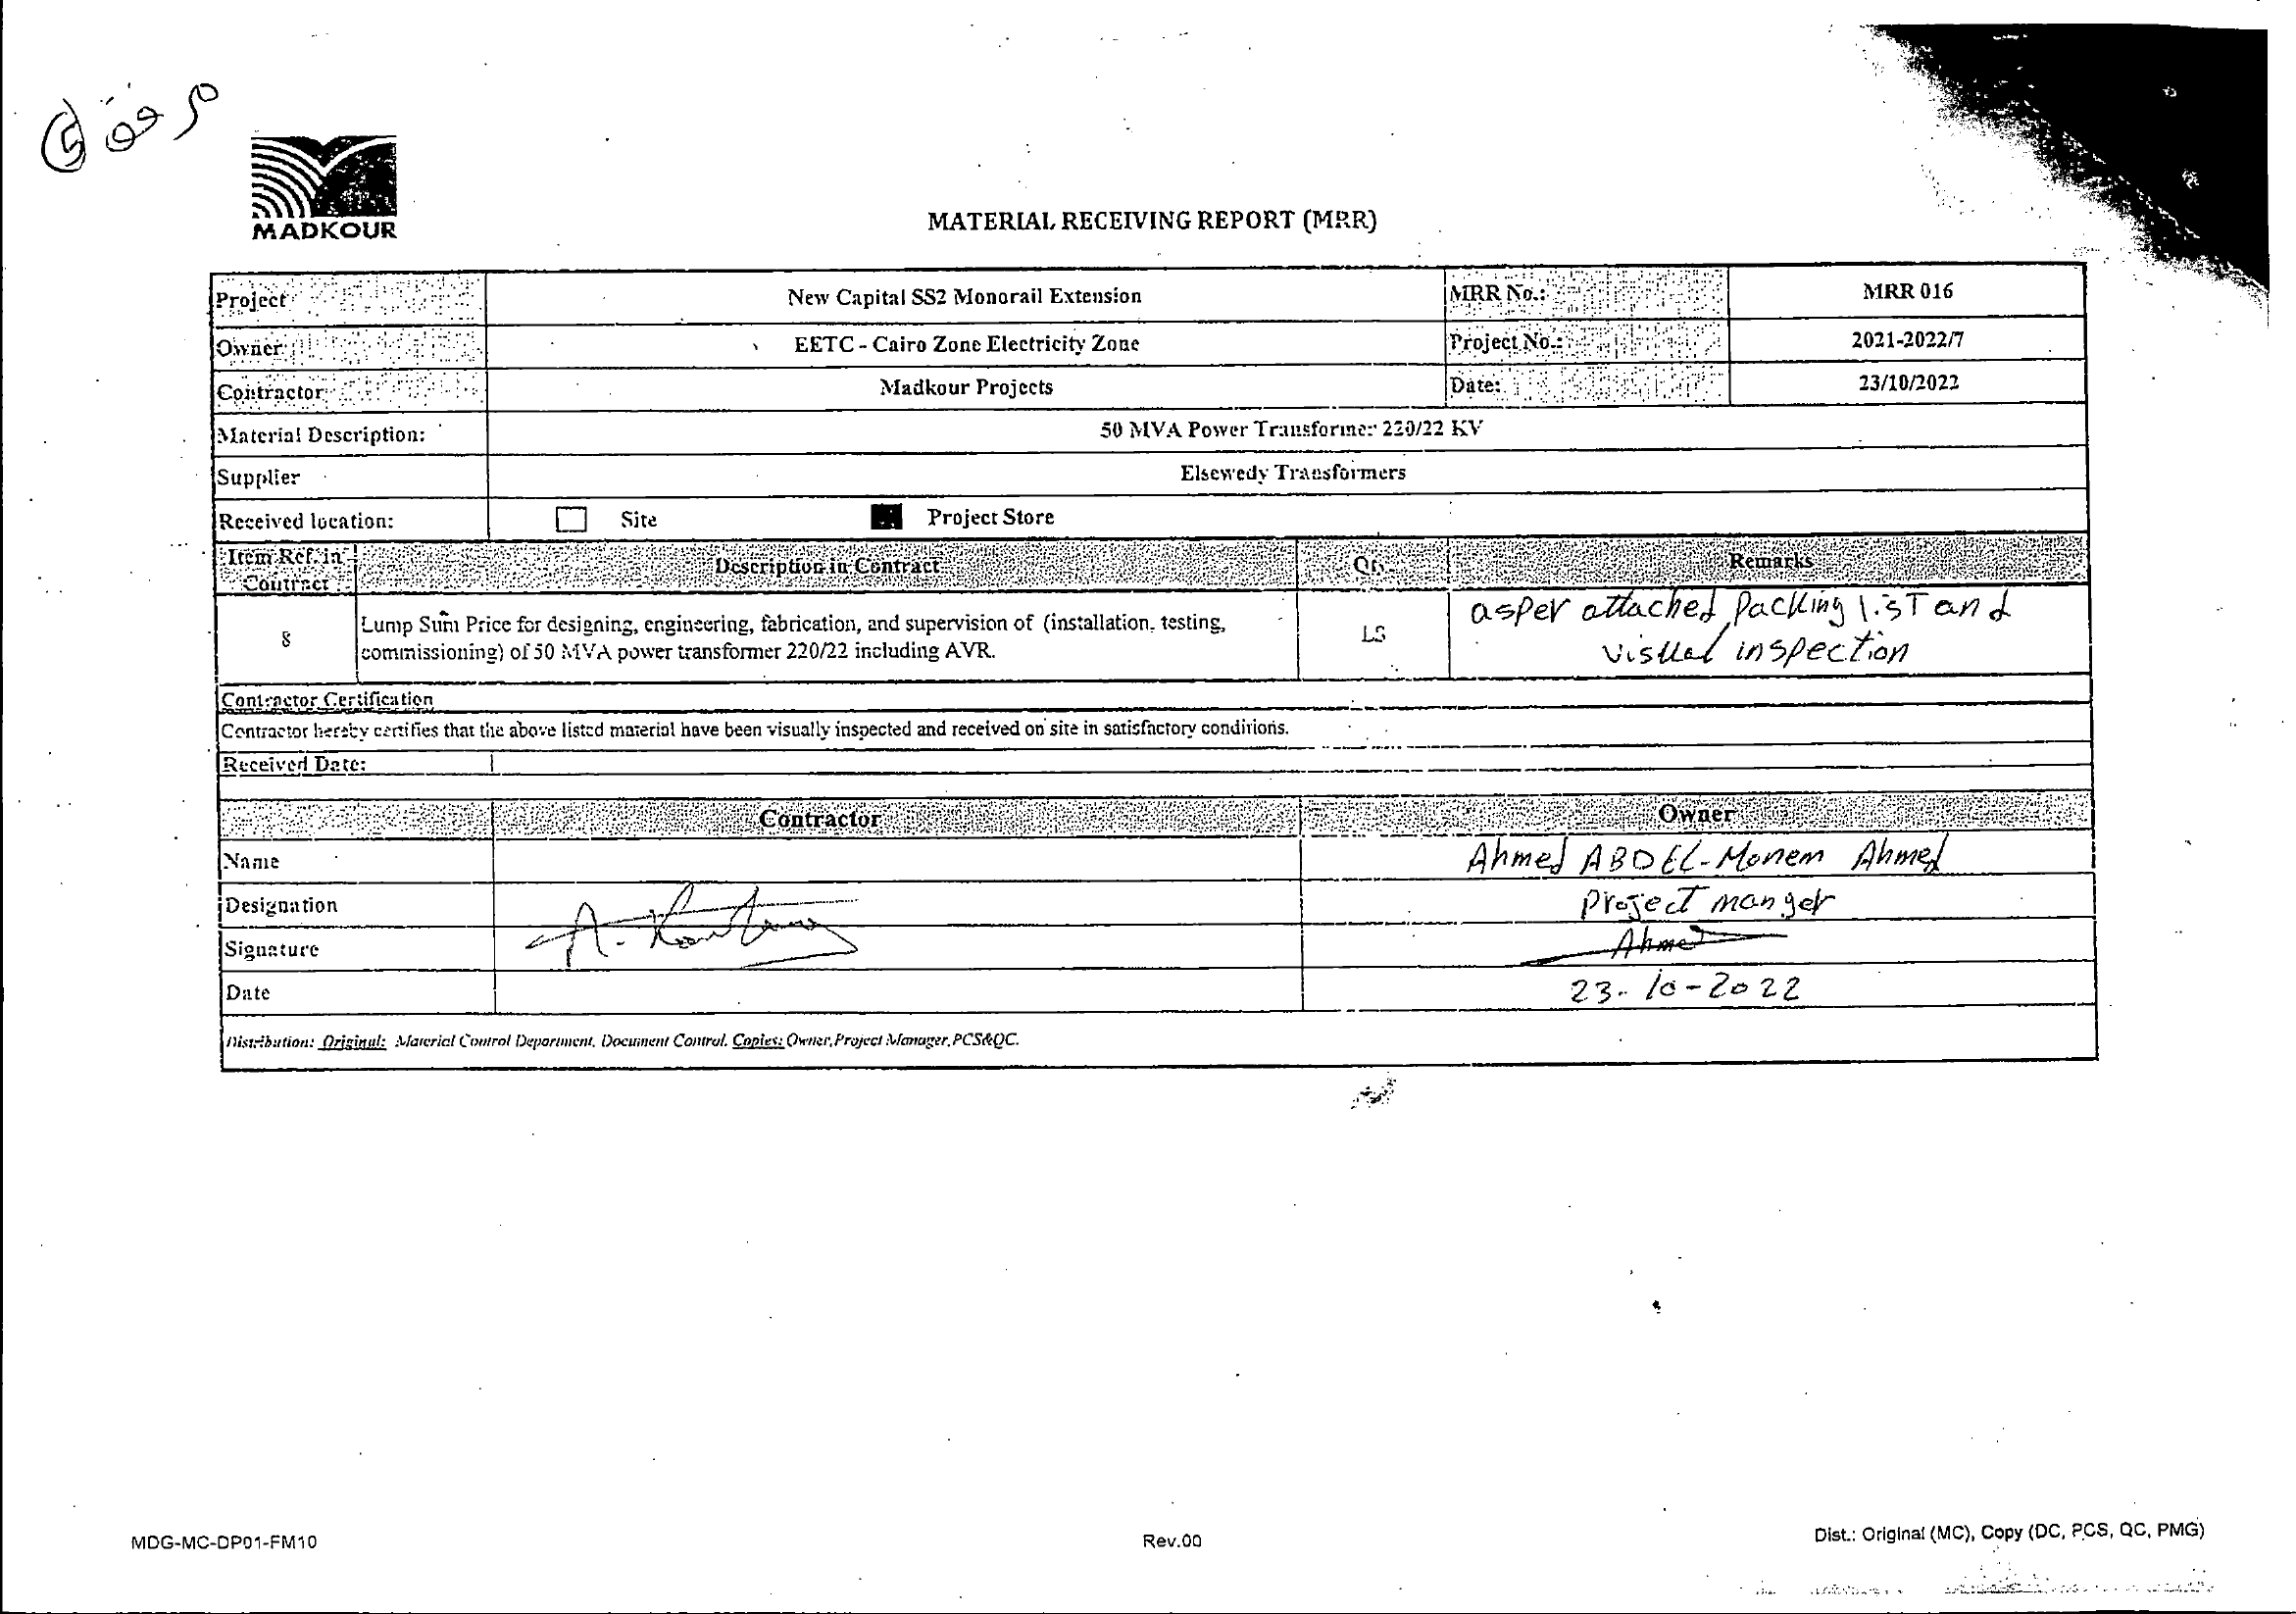 مرفق 5
MADKOUR
MATERIAL RECEIVING REPORT (MRR)
Project New Capital SS2 Monorail Extension MRR No.: MRR 016
Owner EETC - Cairo Zone Electricity Zone Project No.: 2021-2022/7
Contractor Madkour Projects Date: 23/10/2022
Material Description: 50 MVA Power Transformer 220/22 KV
Supplier Elsewedy Transformers
Received location: Site Project Store
Item Ref. in Contract Description in Contract Qty. Remarks
8 Lump Sum Price for designing, engineering, fabrication, and supervision of (installation, testing, LS as per attached packing list and
commissioning) of 50 MVA power transformer 220/22 including AVR. visual inspection
Contractor Certification
Contractor hereby certifies that the above listed material have been visually inspected and received on site in satisfactory conditions.
Received Date:
Contractor Owner
Name Ahmed ABDEL-Monem Ahmed
Designation Project manger
Signature Ahmed
Date 23-10-2022
Distribution: Original: Material Control Department, Document Control. Copies: Owner, Project Manager, PCS&QC.
MDG-MC-DP01-FM10 Rev.00 Dist.: Original (MC), Copy (DC, PCS, QC, PMG)